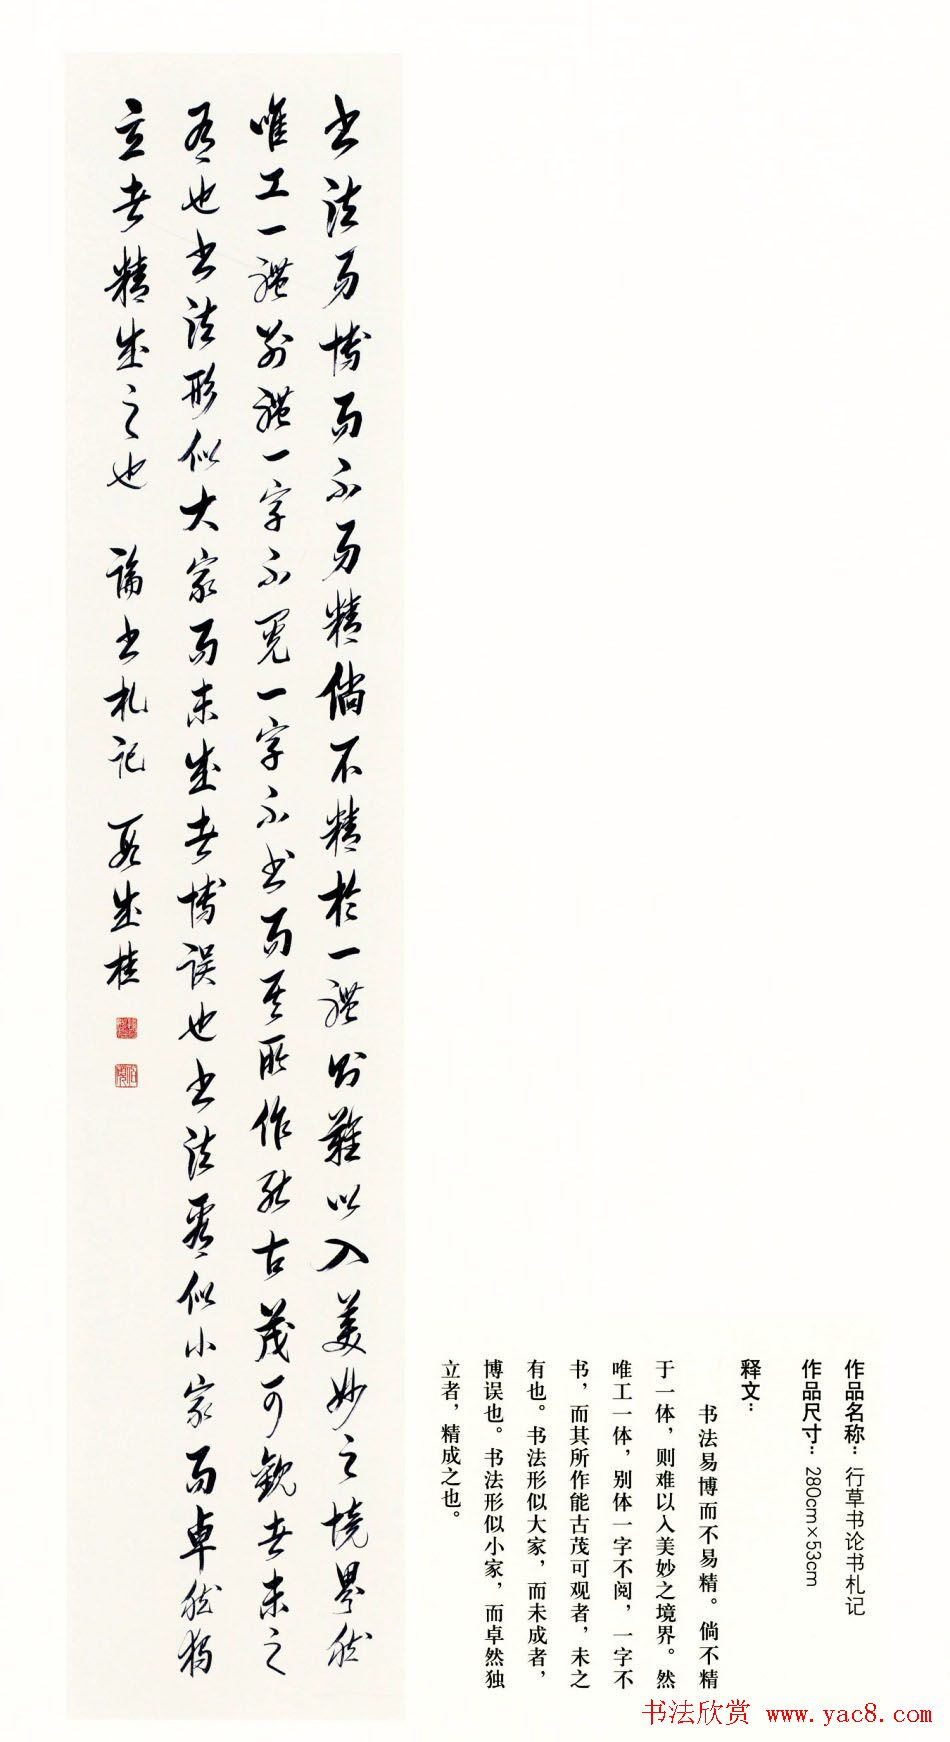 書法易博而不易精倘不精於一體則難以入美妙之境界然
唯工一體別體一字不閱一字不書而其所作能古茂可觀者未之
有也書法形似大家而未成者博誤也書法看似小家而卓然獨
立者精成之也 論書札記 段成桂
作品名称：行草书论书札记
作品尺寸：280cm×53cm
释文：
书法易博而不易精。倘不精
于一体，则难以入美妙之境界。然
唯工一体，别体一字不阅，一字不
书，而其所作能古茂可观者，未之
有也。书法形似大家，而未成者，
博误也。书法形似小家，而卓然独
立者，精成之也。
书法欣赏 www.yac8.com